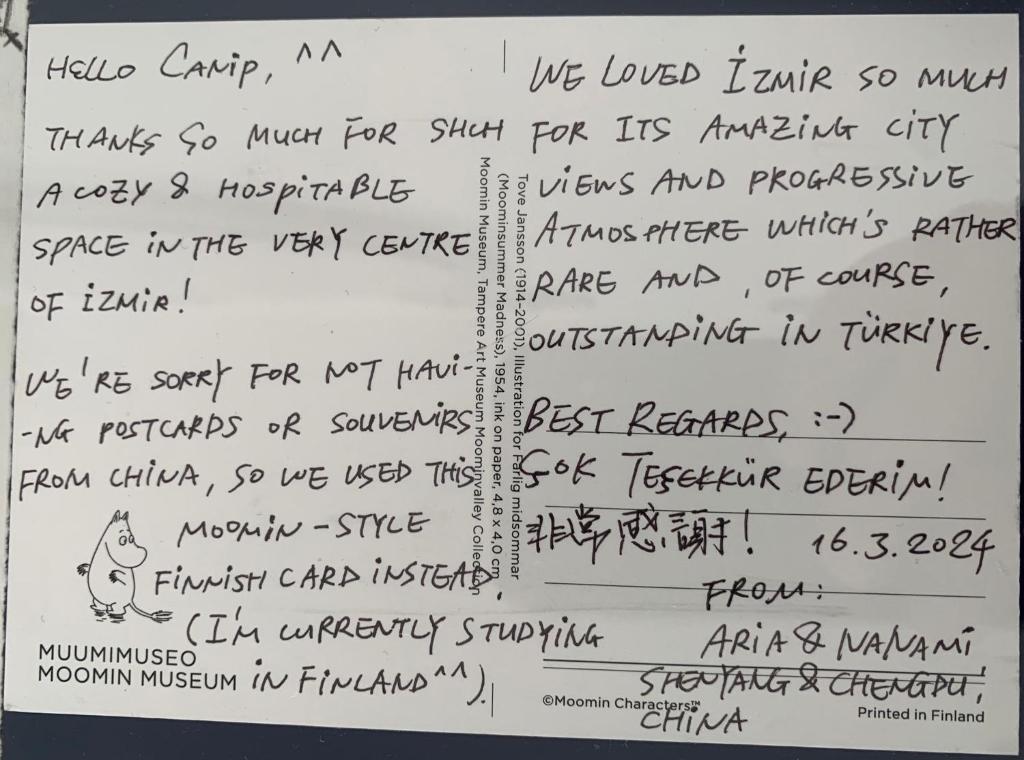 HELLO CANIP, ^^
THANKS SO MUCH FOR SHCH
A COZY & HOSPITABLE
SPACE IN THE VERY CENTRE
OF İZMIR!
WE'RE SORRY FOR NOT HAVI-
-NG POSTCARDS OR SOUVENIRS
FROM CHINA, SO WE USED THIS
MOOMIN-STYLE
FINNISH CARD INSTEAD.
(I'M CURRENTLY STUDYING
IN FINLAND^^).
MUUMIMUSEO
MOOMIN MUSEUM
Tove Jansson (1914–2001), Illustration for Farlig midsommar
(Moominsummer Madness), 1954, ink on paper, 4,8 x 4,0 cm
Moomin Museum, Tampere Art Museum Moominvalley Collection
WE LOVED İZMIR SO MUCH
FOR ITS AMAZING CITY
VIEWS AND PROGRESSIVE
ATMOSPHERE WHICH'S RATHER
RARE AND, OF COURSE,
OUTSTANDING IN TÜRKIYE.
BEST REGARDS, :-)
ÇOK TEŞEKKÜR EDERIM!
非常感謝! 16.3.2024
FROM:
ARIA & NANAMI,
SHENYANG & CHENGDU,
CHINA
©Moomin Characters™
Printed in Finland